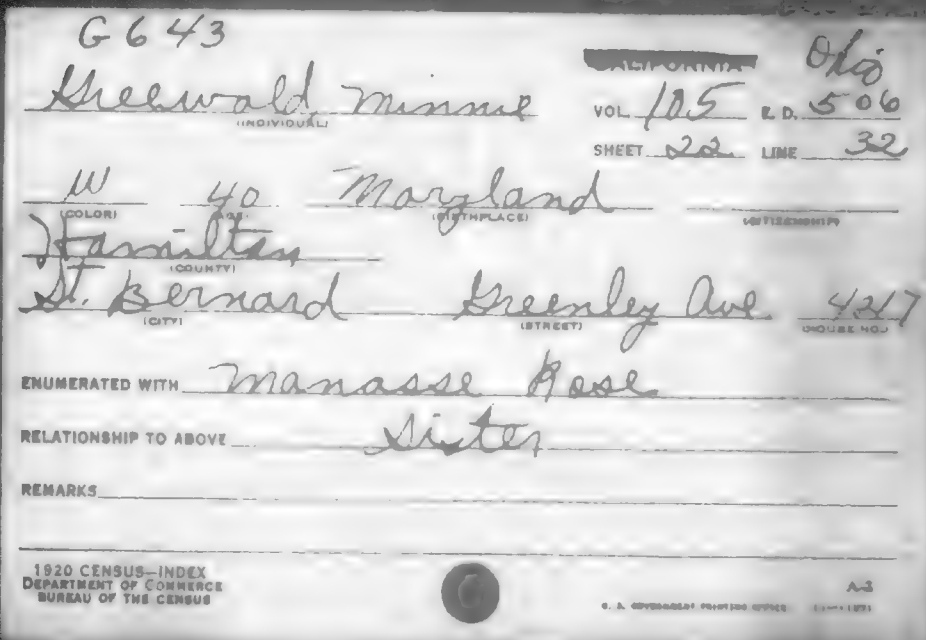 G 643
CALIFORNIA Ohio
Greewald, Minnie
(INDIVIDUAL)
VOL. 105 E. D. 506
SHEET 22 LINE 32
W 40 Maryland
(COLOR) (AGE) (BIRTHPLACE) (CITIZENSHIP)
Hamilton
(COUNTY)
St. Bernard Greenley Ave. 4217
(CITY) (STREET) (HOUSE NO.)
ENUMERATED WITH Manasse Rose
RELATIONSHIP TO ABOVE Sister
REMARKS
1920 CENSUS—INDEX
DEPARTMENT OF COMMERCE
BUREAU OF THE CENSUS
A-3
U. S. GOVERNMENT PRINTING OFFICE